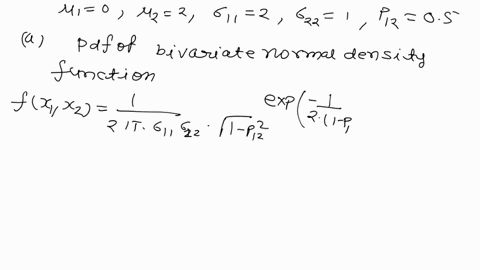 μ1=0, μ2=2, σ11=2, σ22=1, ρ12=0.5
(a) pdf of bivariate normal density
function
f(x1, x2) = 1 / (2π. σ11 σ22 . √(1-ρ12^2)) exp(-1 / (2.(1-ρ1